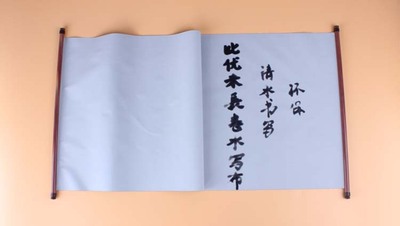 环保
清水书写
比优米長卷水写布